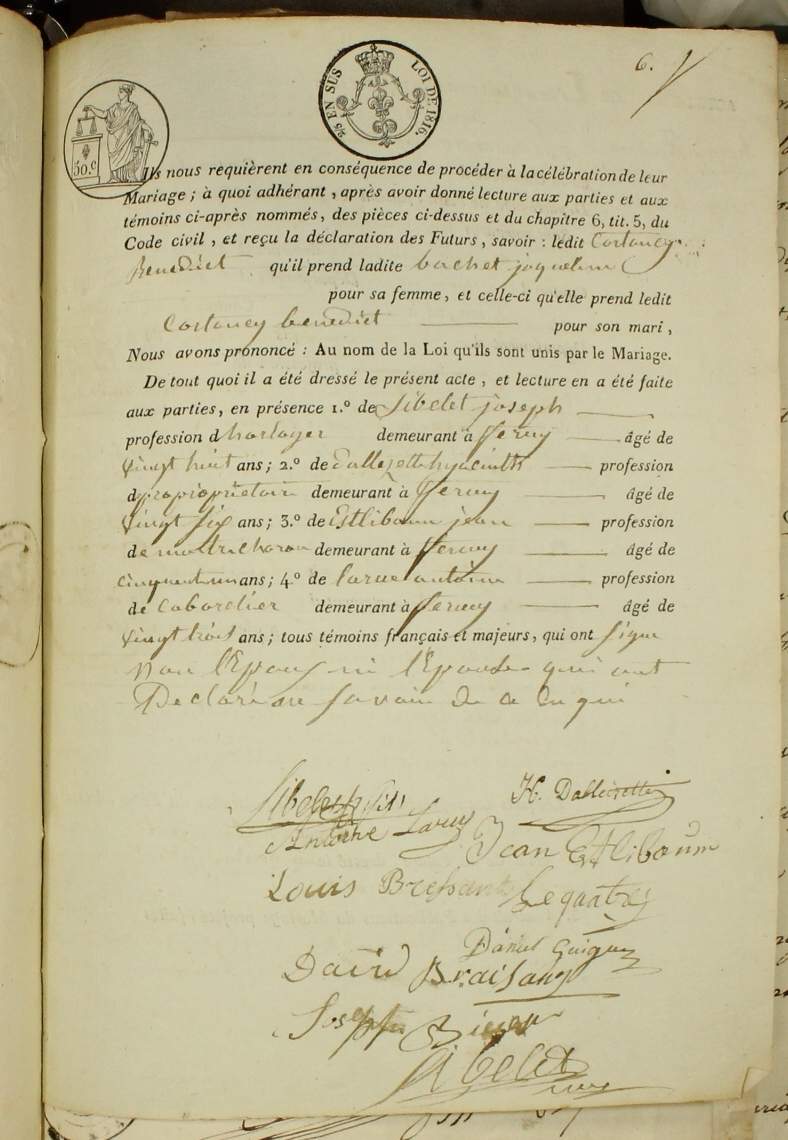 6.
2/5 EN SUS LOI DE 1816.
50.c
Ils nous requièrent en conséquence de procéder à la célébration de leur
Mariage ; à quoi adhérant , après avoir donné lecture aux parties et aux
témoins ci-après nommés, des pièces ci-dessus et du chapitre 6, tit. 5, du
Code civil , et reçu la déclaration des Futurs , savoir : ledit Costancy
Benedict qu'il prend ladite bachet joqueline
pour sa femme, et celle-ci qu'elle prend ledit
Costancy benedict pour son mari ,
Nous avons prononcé : Au nom de la Loi qu'ils sont unis par le Mariage.
De tout quoi il a été dressé le présent acte , et lecture en a été faite
aux parties, en présence 1.º de Sibelet joseph
profession d horloger demeurant à ferney âgé de
vingt huit ans ; 2.º de Dallezette hyacinth profession
d propiopriétair demeurant à ferney âgé de
vingt six ans ; 3.º de Estlibaum jean profession
de demeurant à ferney âgé de
cinquant un ans ; 4.º de larue antoine profession
de Cabordier demeurant à ferney âgé de
vingt trois ans ; tous témoins français et majeurs, qui ont signe
non l'Epoux ni l'Epouse qui ont
Declaré ne savoir De ce En qui
Sibelet
H. Dallezette
Antoine Larue
Jean Estlibaum
Louis Bressant
Daniel Guigue
David Braisant
Joseph
Sibelet